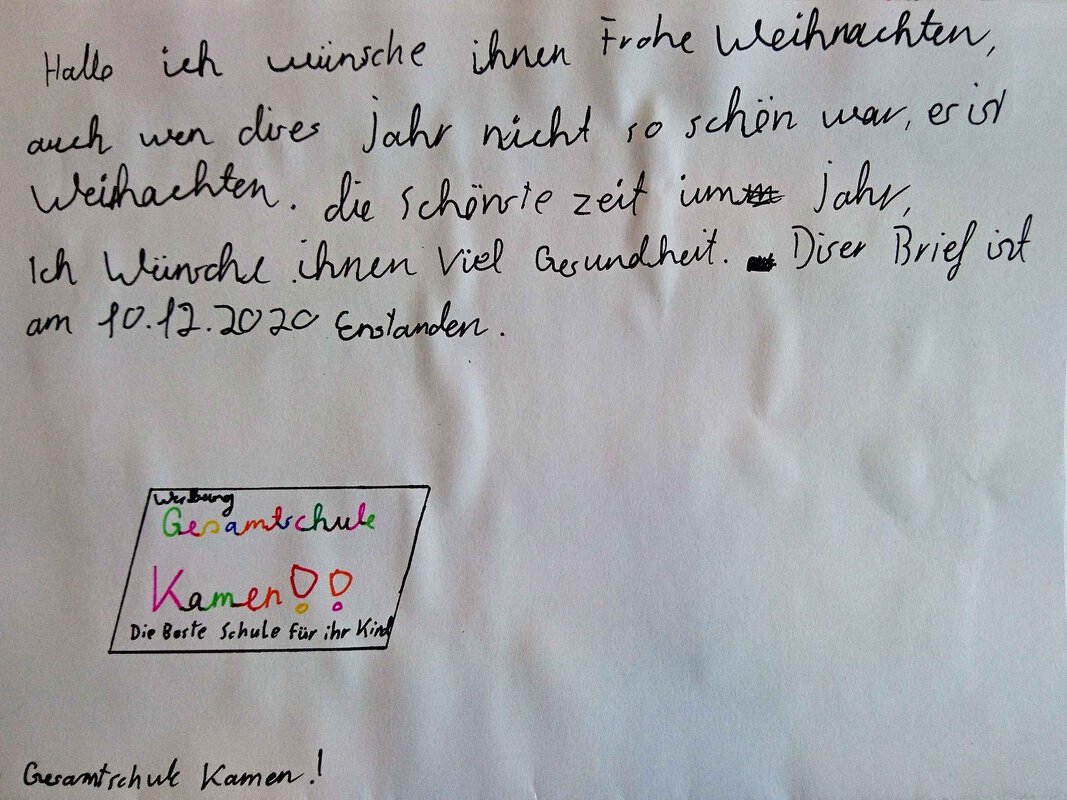 Hallo ich wünsche ihnen Frohe Weihnachten,
auch wen dires Jahr nicht so schön war, es ist
Weihachten. die schönste zeit im Jahr,
Ich Wünsche ihnen Viel Gesundheit. Diser Brief ist
am 10.12.2020 Enstanden.
Werbung
Gesamtschule
Kamen!!
Die Beste Schule für ihr Kind
Gesamtschule Kamen!